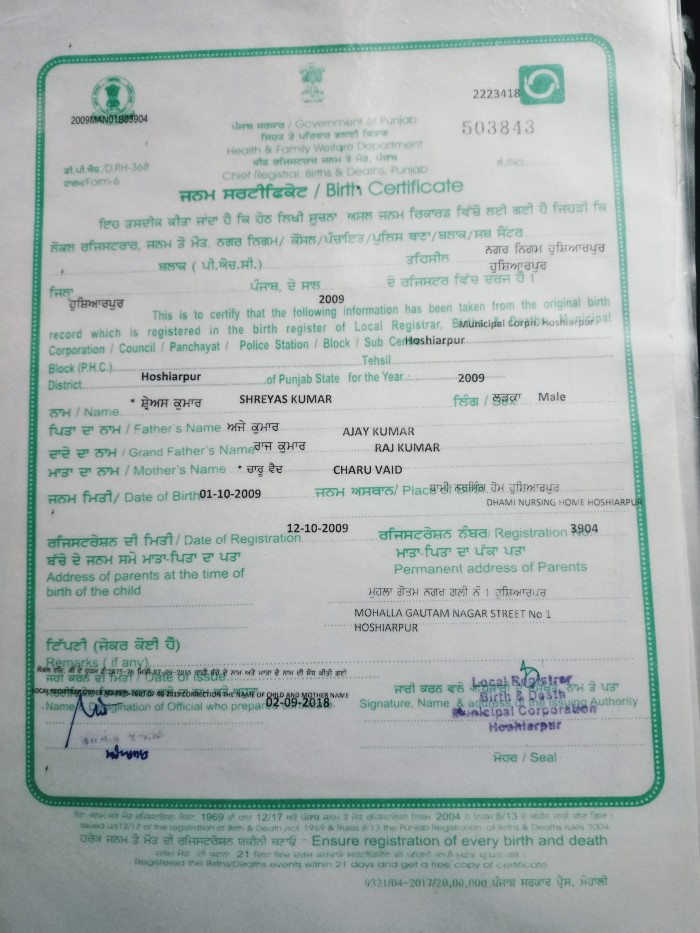 2223418
2009MAN01B03904
ਪੰਜਾਬ ਸਰਕਾਰ / Government of Punjab
503843
ਸਿਹਤ ਤੇ ਪਰਿਵਾਰ ਭਲਾਈ ਵਿਭਾਗ
Health & Family Welfare Department
ਚੀਫ ਰਜਿਸਟਰਾਰ ਜਨਮ ਤੇ ਮੌਤ, ਪੰਜਾਬ
ਡੀ.ਪੀ.ਐਚ./D.PH-368
ਨੰ./No.
Chief Registrar, Births & Deaths, Punjab
ਫਾਰਮ/Form-6
ਜਨਮ ਸਰਟੀਫਿਕੇਟ / Birth Certificate
ਇਹ ਤਸਦੀਕ ਕੀਤਾ ਜਾਂਦਾ ਹੈ ਕਿ ਹੇਠ ਲਿਖੀ ਸੂਚਨਾ ਅਸਲ ਜਨਮ ਰਿਕਾਰਡ ਵਿੱਚੋਂ ਲਈ ਗਈ ਹੈ ਜਿਹੜੀ ਕਿ
ਲੋਕਲ ਰਜਿਸਟਰਾਰ, ਜਨਮ ਤੇ ਮੌਤ, ਨਗਰ ਨਿਗਮ/ ਕੌਂਸਲ/ਪੰਚਾਇਤ/ਪੁਲਿਸ ਥਾਣਾ/ਬਲਾਕ/ਸਬ ਸੈਂਟਰ
ਨਗਰ ਨਿਗਮ ਹੁਸ਼ਿਆਰਪੁਰ
ਬਲਾਕ ( ਪੀ.ਐਚ.ਸੀ.) ਤਹਿਸੀਲ ਹੁਸ਼ਿਆਰਪੁਰ
ਜਿਲਾ ਹੁਸ਼ਿਆਰਪੁਰ ਪੰਜਾਬ, ਦੇ ਸਾਲ 2009 ਦੇ ਰਜਿਸਟਰ ਵਿੱਚ ਦਰਜ ਹੈ ।
This is to certify that the following information has been taken from the original birth
record which is registered in the birth register of Local Registrar, Municipal Corpn. Hoshiarpur Municipal
Corporation / Council / Panchayat / Police Station / Block / Sub Hoshiarpur
Block (P.H.C.) Tehsil
District Hoshiarpur of Punjab State for the Year 2009
ਨਾਮ / Name * ਸ਼੍ਰੇਅਸ ਕੁਮਾਰ SHREYAS KUMAR ਲਿੰਗ / ਲੜਕਾ Male
ਪਿਤਾ ਦਾ ਨਾਮ / Father's Name ਅਜੇ ਕੁਮਾਰ AJAY KUMAR
ਦਾਦੇ ਦਾ ਨਾਮ / Grand Father's Name ਰਾਜ ਕੁਮਾਰ RAJ KUMAR
ਮਾਤਾ ਦਾ ਨਾਮ / Mother's Name * ਚਾਰੂ ਵੈਦ CHARU VAID
ਜਨਮ ਮਿਤੀ/ Date of Birth 01-10-2009 ਜਨਮ ਅਸਥਾਨ/ ਧਾਮੀ ਨਰਸਿੰਗ ਹੋਮ ਹੁਸ਼ਿਆਰਪੁਰ
DHAMI NURSING HOME HOSHIARPUR
ਰਜਿਸਟਰੇਸ਼ਨ ਦੀ ਮਿਤੀ / Date of Registration 12-10-2009 ਰਜਿਸਟਰੇਸ਼ਨ ਨੰਬਰ/ Registration 3904
ਬੱਚੇ ਦੇ ਜਨਮ ਸਮੇਂ ਮਾਤਾ-ਪਿਤਾ ਦਾ ਪਤਾ
ਮਾਤਾ-ਪਿਤਾ ਦਾ ਪੱਕਾ ਪਤਾ
Address of parents at the time of
birth of the child
Permanent address of Parents
ਮੁਹਲਾ ਗੌਤਮ ਨਗਰ ਗਲੀ ਨੰ 1 ਹੁਸ਼ਿਆਰਪੁਰ
MOHALLA GAUTAM NAGAR STREET No 1
HOSHIARPUR
ਟਿੱਪਣੀ (ਜੇਕਰ ਕੋਈ ਹੈ)
Remarks ( if any)
ਜਾਰੀ ਕਰਨ ਦੀ ਮਿਤੀ / Date of Issue
CORRECTION THE NAME OF CHILD AND MOTHER NAME
02-09-2018
Name, Designation of Official who
ਜਾਰੀ ਕਰਨ ਵਾਲੇ ਨਾਮ ਤੇ ਪਤਾ
Signature, Name & address of the Issuing Authority
Local Registrar
Birth & Death
Municipal Corporation
Hoshiarpur
ਮੋਹਰ / Seal
ਹਰੇਕ ਜਨਮ ਤੇ ਮੌਤ ਦੀ ਰਜਿਸਟਰੇਸ਼ਨ ਯਕੀਨੀ ਬਣਾਓ - Ensure registration of every birth and death
Registered the Births/Deaths events within 21 days and get a free copy of certificate
9321/04-2017/20,00,000 ਪੰਜਾਬ ਸਰਕਾਰ ਪ੍ਰੈਸ, ਮੋਹਾਲੀ